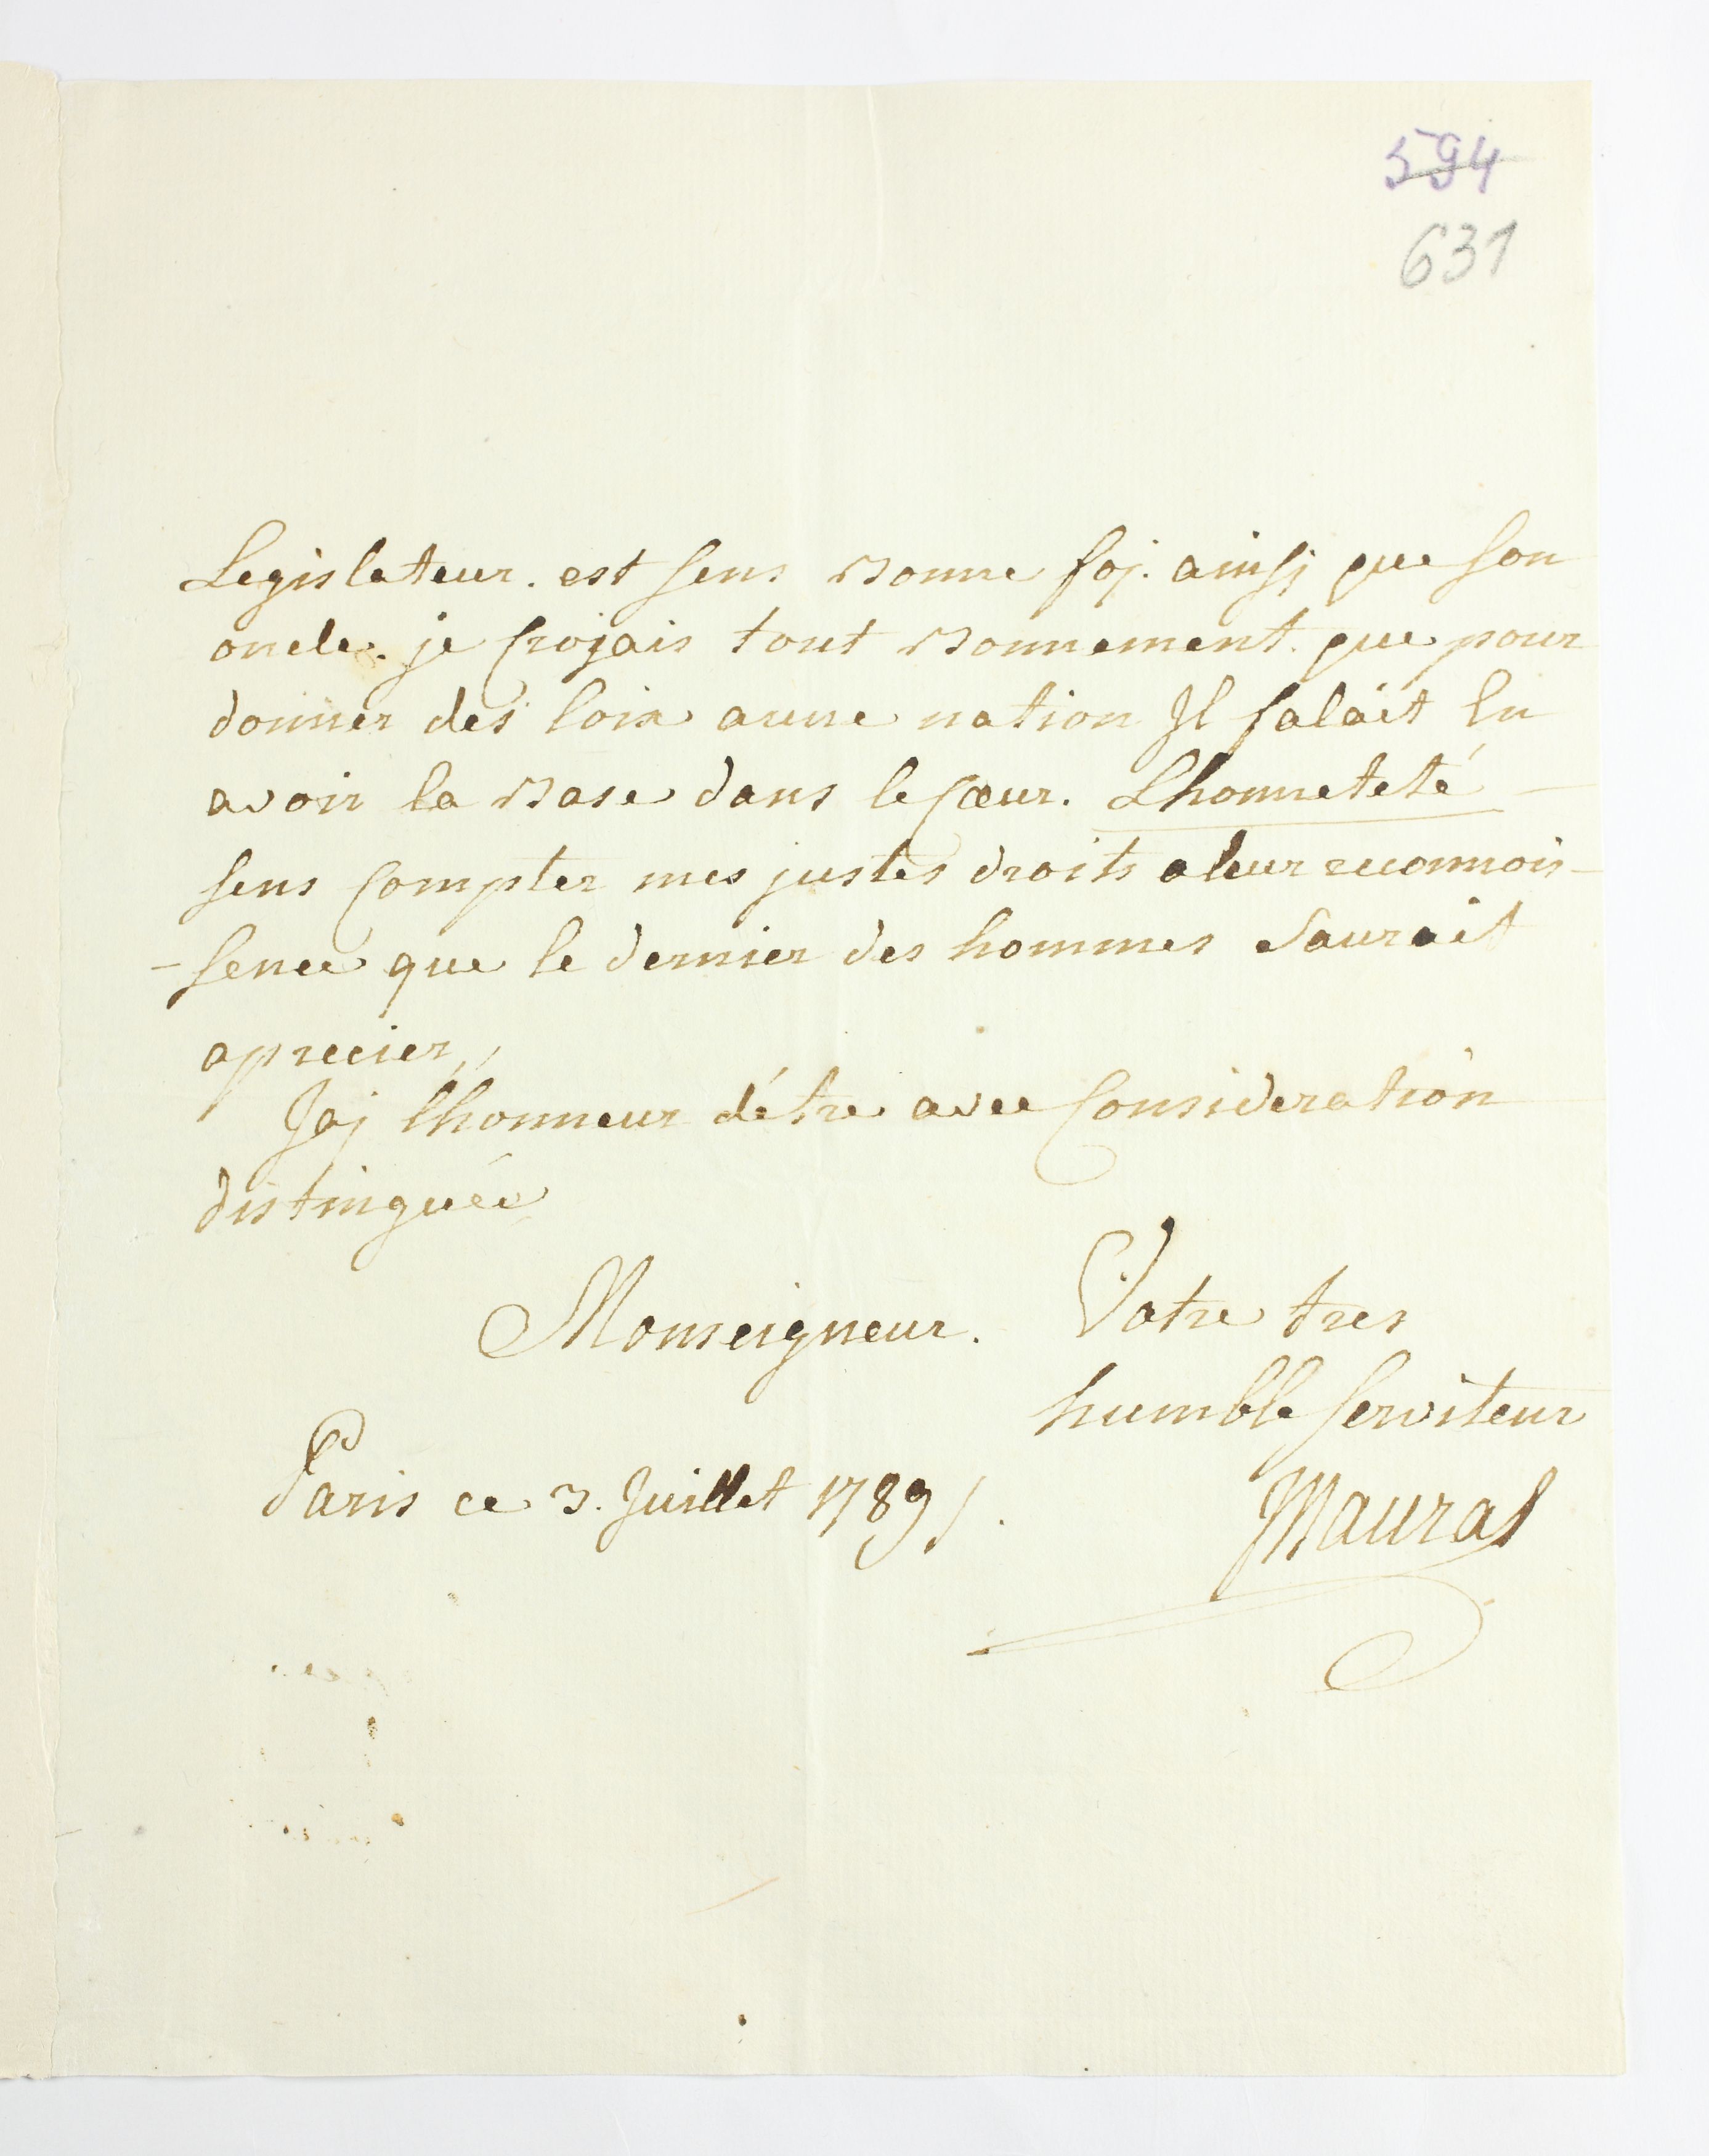 594
631
Legislateur. est sens bonne foj. ainsj que son
oncle. je crojais tout bonnement. que pour
donner des loix aune nation Il falait en
avoir la base dans le cœur. Lhonneteté
sens compter mes justes droits a leur reconnois-
-sence que le dernier des hommes saurait
aprecier,,
Jaj lhonneur détre avec consideration
distinguée
Monseigneur. Votre tres
humble serviteur
Paris ce 3. Juillet 1789. Mauras